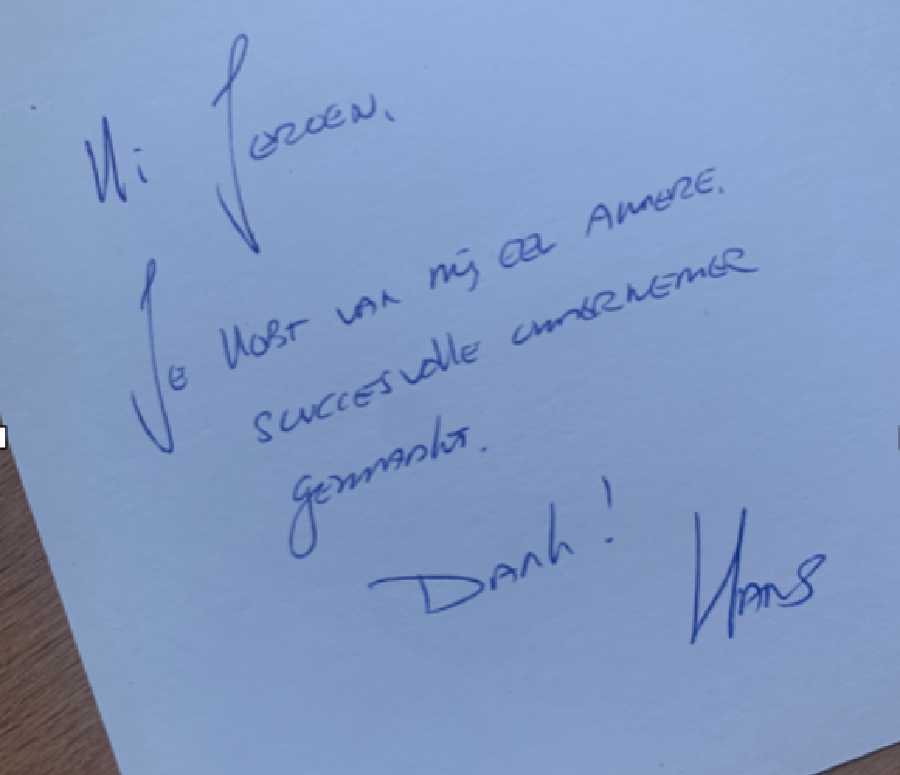 Hi Jeroen,
Je hebt van mij een andere,
succesvolle ondernemer
gemaakt.
Dank!
Hans